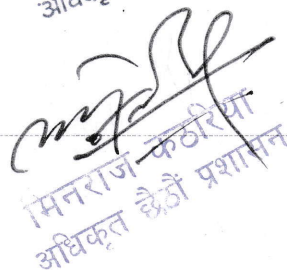 मिनराज कठरिया
अधिकृत छैठौं प्रशासन